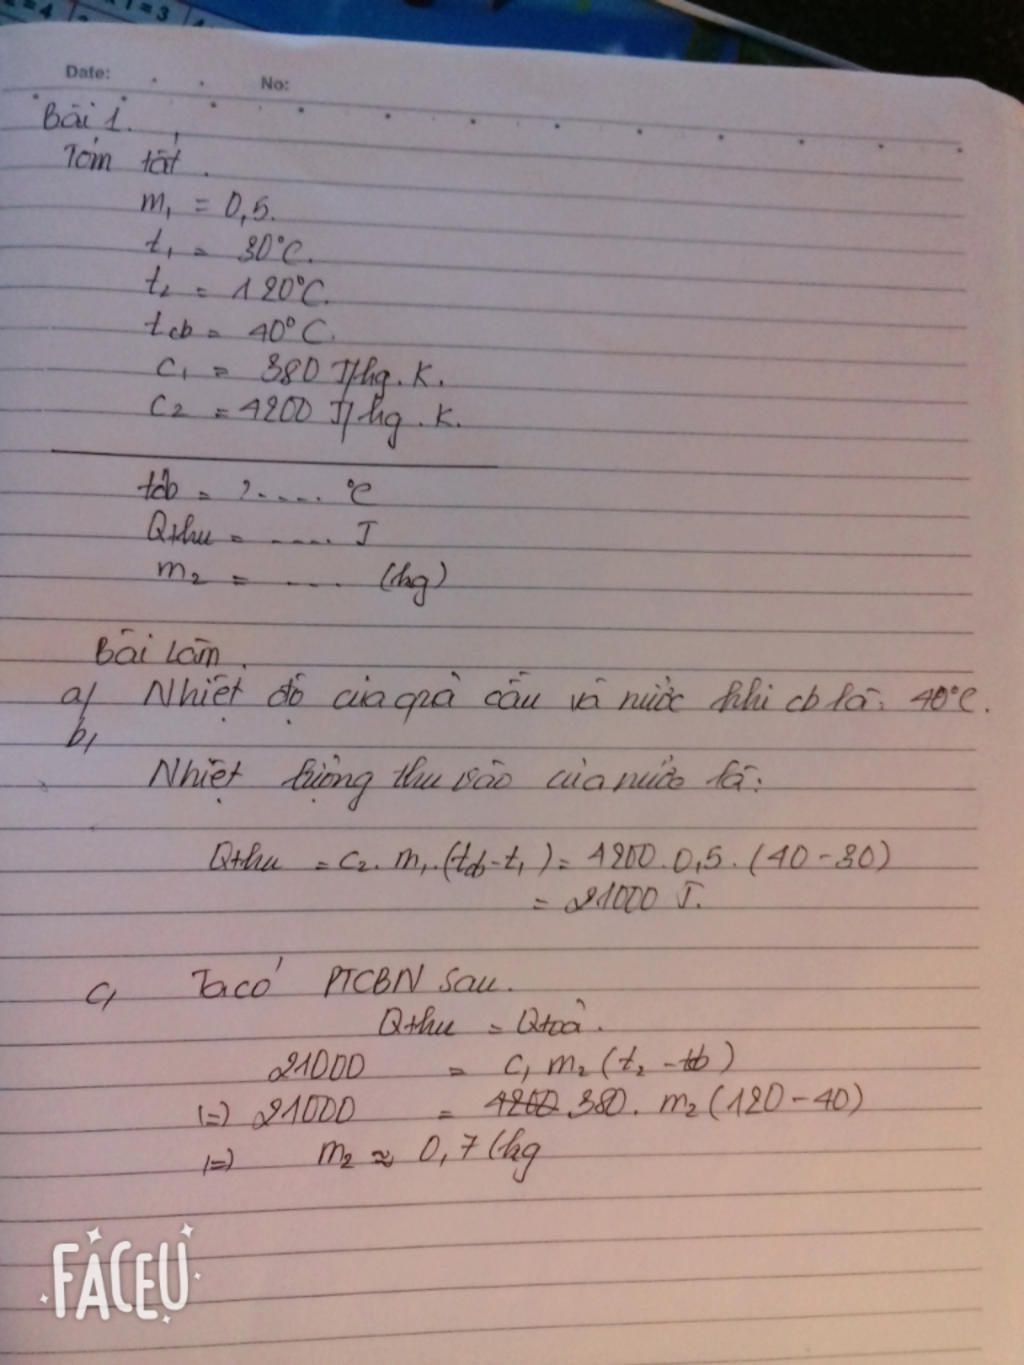 Date:
No:
Bài 1.
Tóm tắt.
m₁ = 0,5.
t₁ = 30°C.
t₂ = 120°C.
tcb = 40°C.
C₁ = 380 J/kg.K.
C₂ = 4200 J/kg.K.
tcb = ?.... °C
Qthu = .... J
m₂ = .... (kg)
Bài làm.
a, Nhiệt độ của quả cầu và nước khi cb là: 40°C.
b,
Nhiệt lượng thu vào của nước là:
Qthu = C₂. m₁.(tcb-t₁) = 4200.0,5.(40-30)
= 21000 J.
c, Ta có PTCBN sau.
Qthu = Qtoả.
21000 = C₁ m₂ (t₂ - tcb)
(=) 21000 = 4200 380. m₂ (120-40)
(=) m₂ ≈ 0,7 (kg
FACEU